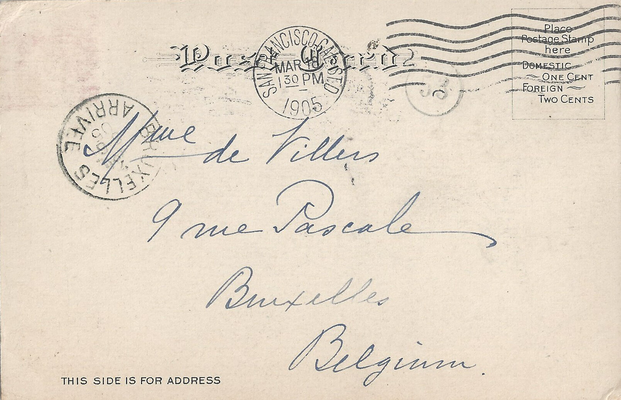 Post Card
SAN FRANCISCO, CAL. STA. D
MAR
1 30 PM
1905
Place
Postage Stamp
here
DOMESTIC
ONE CENT
FOREIGN
TWO CENTS
BRUXELLES
ARRIVÉE
Mme de Villers
9 rue Pascale
Bruxelles
Belgium.
THIS SIDE IS FOR ADDRESS